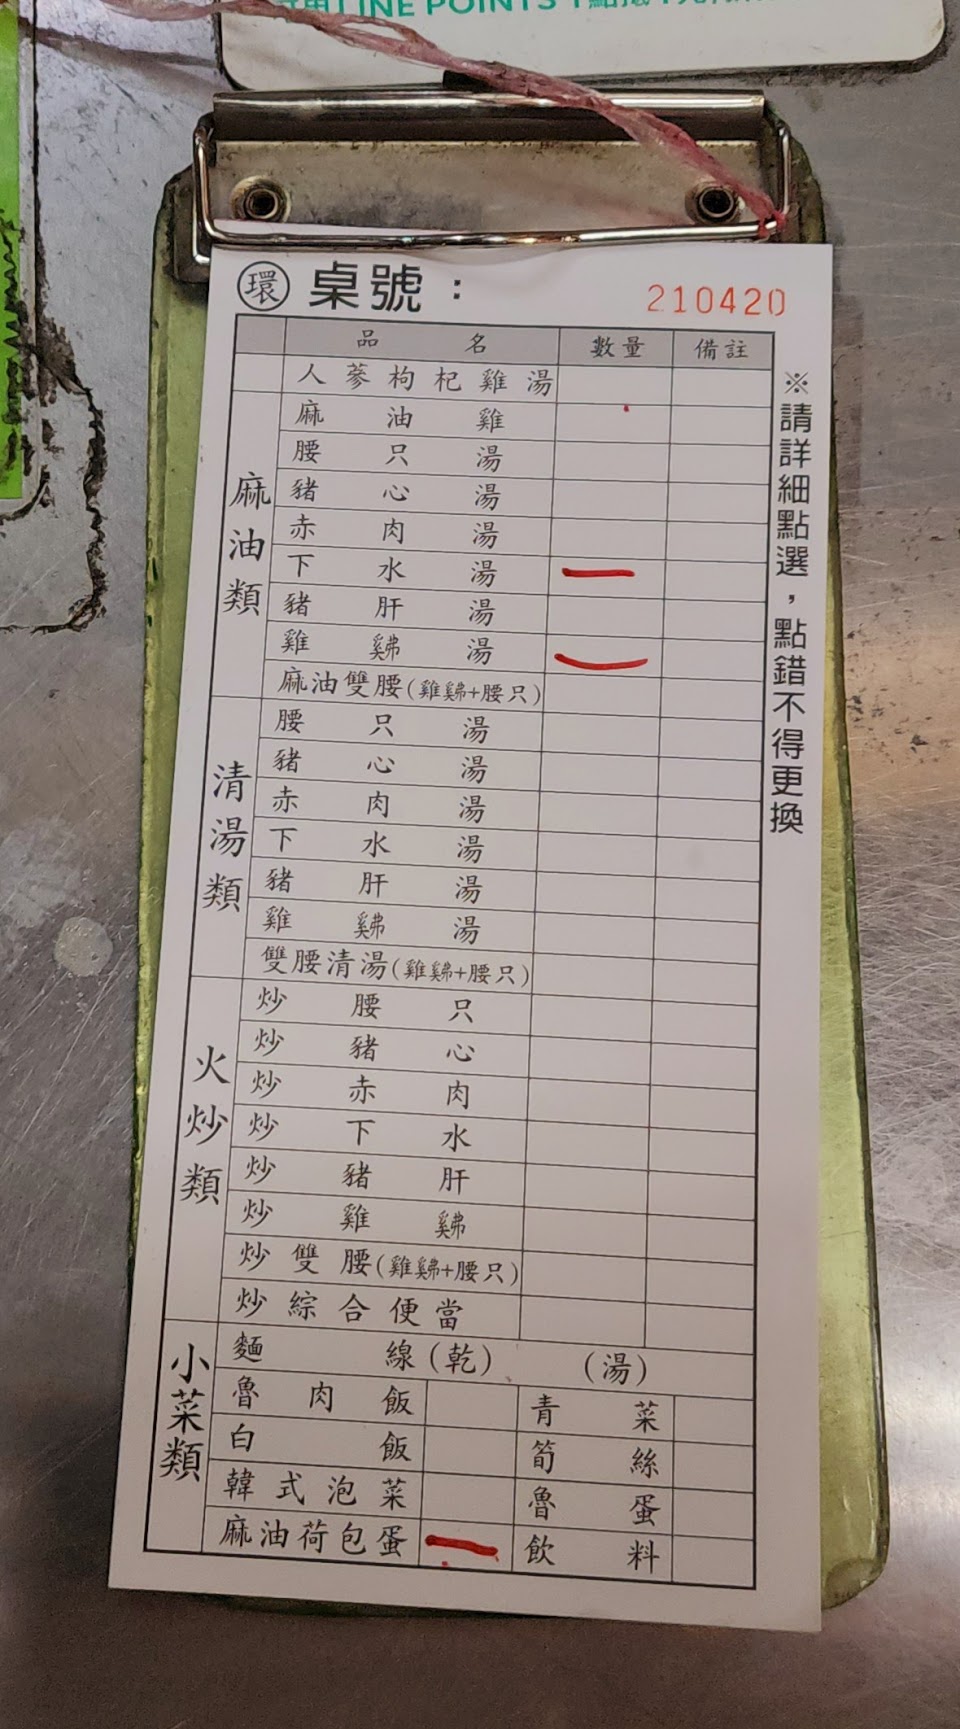 LINE POINTS
環 桌號：
210420
品名 數量 備註
人蔘枸杞雞湯
麻油類
麻油雞
腰只湯
豬心湯
赤肉湯
下水湯 一
豬肝湯
雞雞湯 一
麻油雙腰(雞雞+腰只)
清湯類
腰只湯
豬心湯
赤肉湯
下水湯
豬肝湯
雞湯
雙腰清湯(雞+腰只)
火炒類
炒腰只
炒豬心
炒赤肉
炒下水
炒豬肝
炒雞
炒雙腰(雞+腰只)
炒綜合便當
小菜類
麵線(乾) (湯)
魯肉飯 青菜
白飯 筍絲
韓式泡菜 魯蛋
麻油荷包蛋 一 飲料
※請詳細點選，點錯不得更換